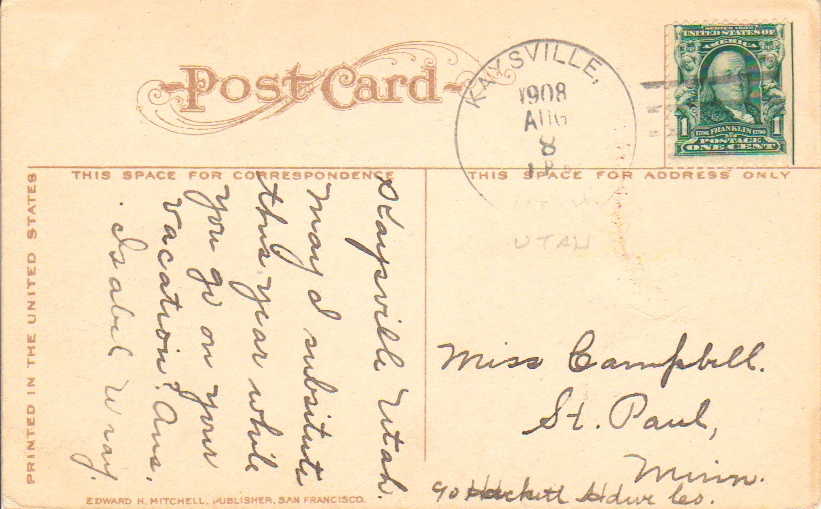 Post Card
KAYSVILLE,
1908
AUG
8
UTAH
SERIES 1902
UNITED STATES OF
AMERICA
1706 FRANKLIN 1790
1 POSTAGE 1
ONE CENT
THIS SPACE FOR CORRESPONDENCE
THIS SPACE FOR ADDRESS ONLY
PRINTED IN THE UNITED STATES
Kaysville Utah.
May I subsitute
this year while
you go on your
vacation? Ans.
Isabel Wray.
Miss Campbell.
St. Paul,
Minn.
c/o Hackett Hdwr Co.
EDWARD H. MITCHELL, PUBLISHER, SAN FRANCISCO.